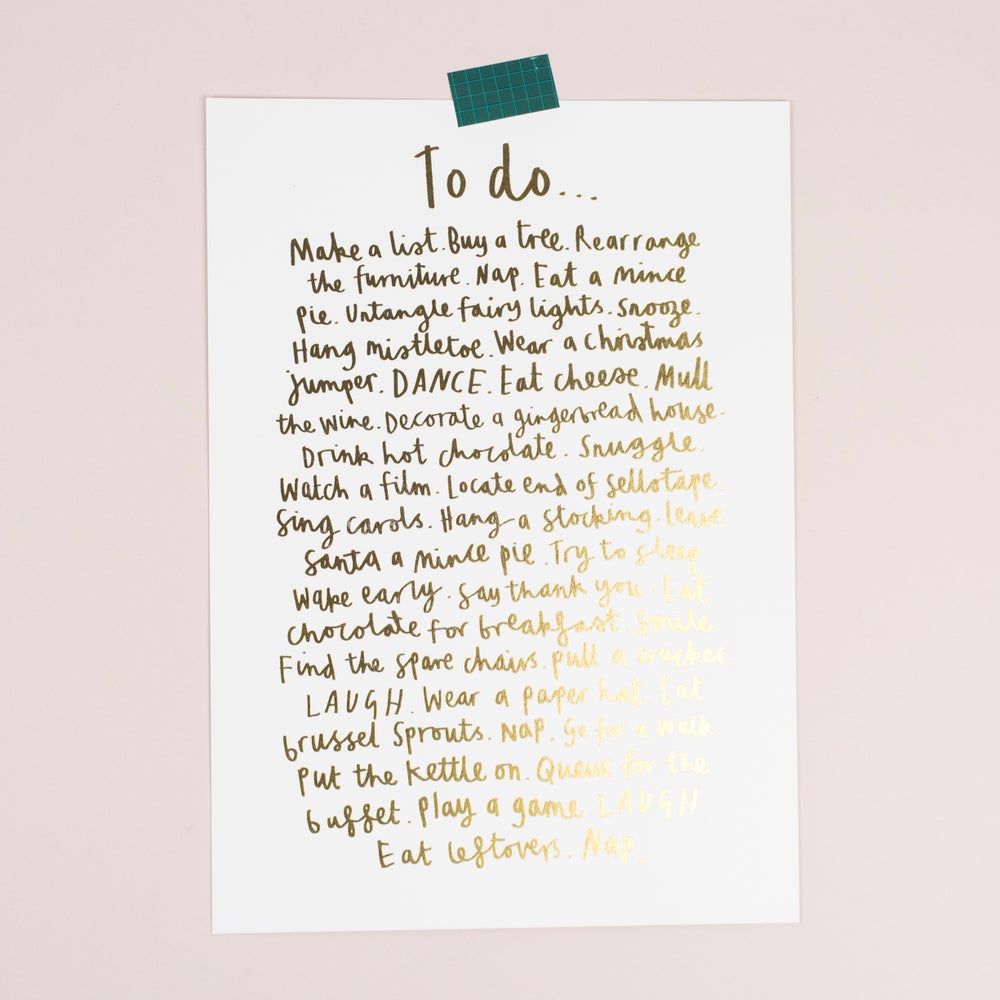 To do...
Make a list. Buy a tree. Rearrange
the furniture. Nap. Eat a mince
pie. Untangle fairy lights. Snooze.
Hang mistletoe. Wear a christmas
jumper. DANCE. Eat cheese. Mull
the wine. Decorate a gingerbread house.
Drink hot chocolate. Snuggle.
Watch a film. Locate end of sellotape.
Sing carols. Hang a stocking. Leave
Santa a mince pie. Try to sleep
Wake early. Say thank you. Eat
chocolate for breakfast. Smile.
Find the spare chairs. pull a cracker
LAUGH. Wear a paper hat. Eat
brussel Sprouts. Nap. Go for a walk
Put the kettle on. Queue for the
buffet. Play a game. LAUGH
Eat leftovers. Nap.